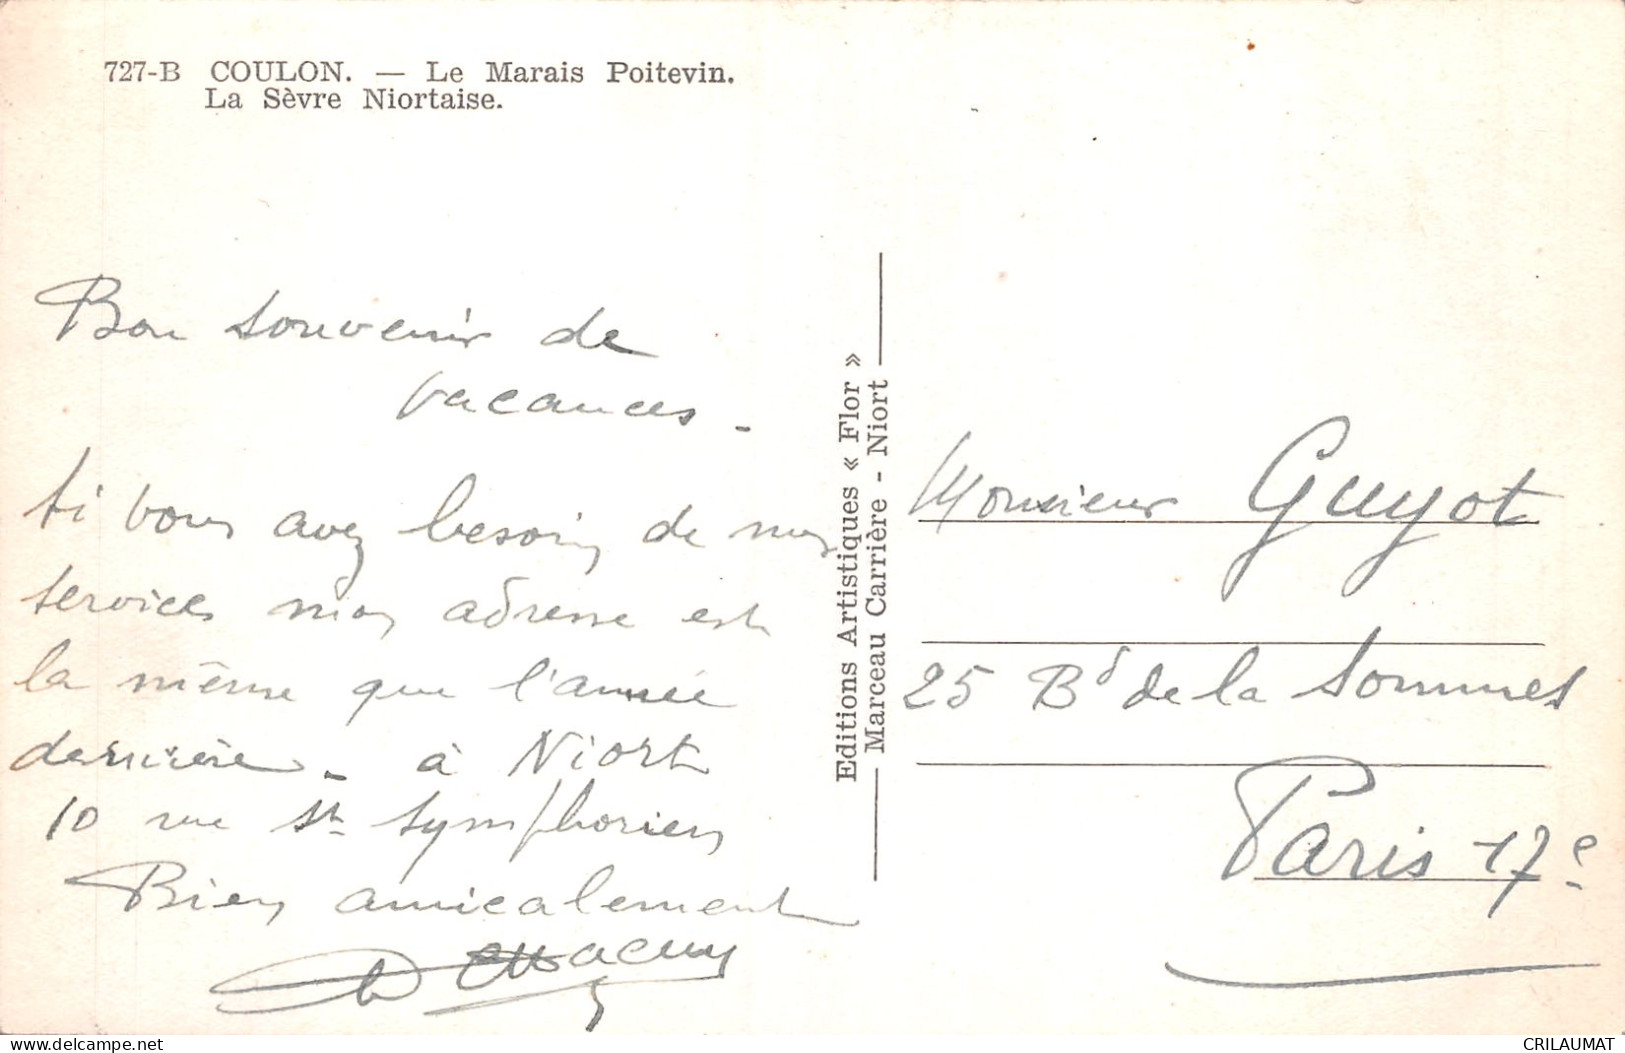 727-B COULON. — Le Marais Poitevin.
La Sèvre Niortaise.
Bon souvenir de
vacances -
Si vous avez besoin de mes
services mon adresse est
la même que l'année
dernière - à Niort
10 rue St Symphorien
Bien amicalement
Editions Artistiques « Flor »
Marceau Carrière - Niort
Monsieur Guyot
25 Bd de la Sommes
Paris 17e
delcampe.net
CRILAUMAT